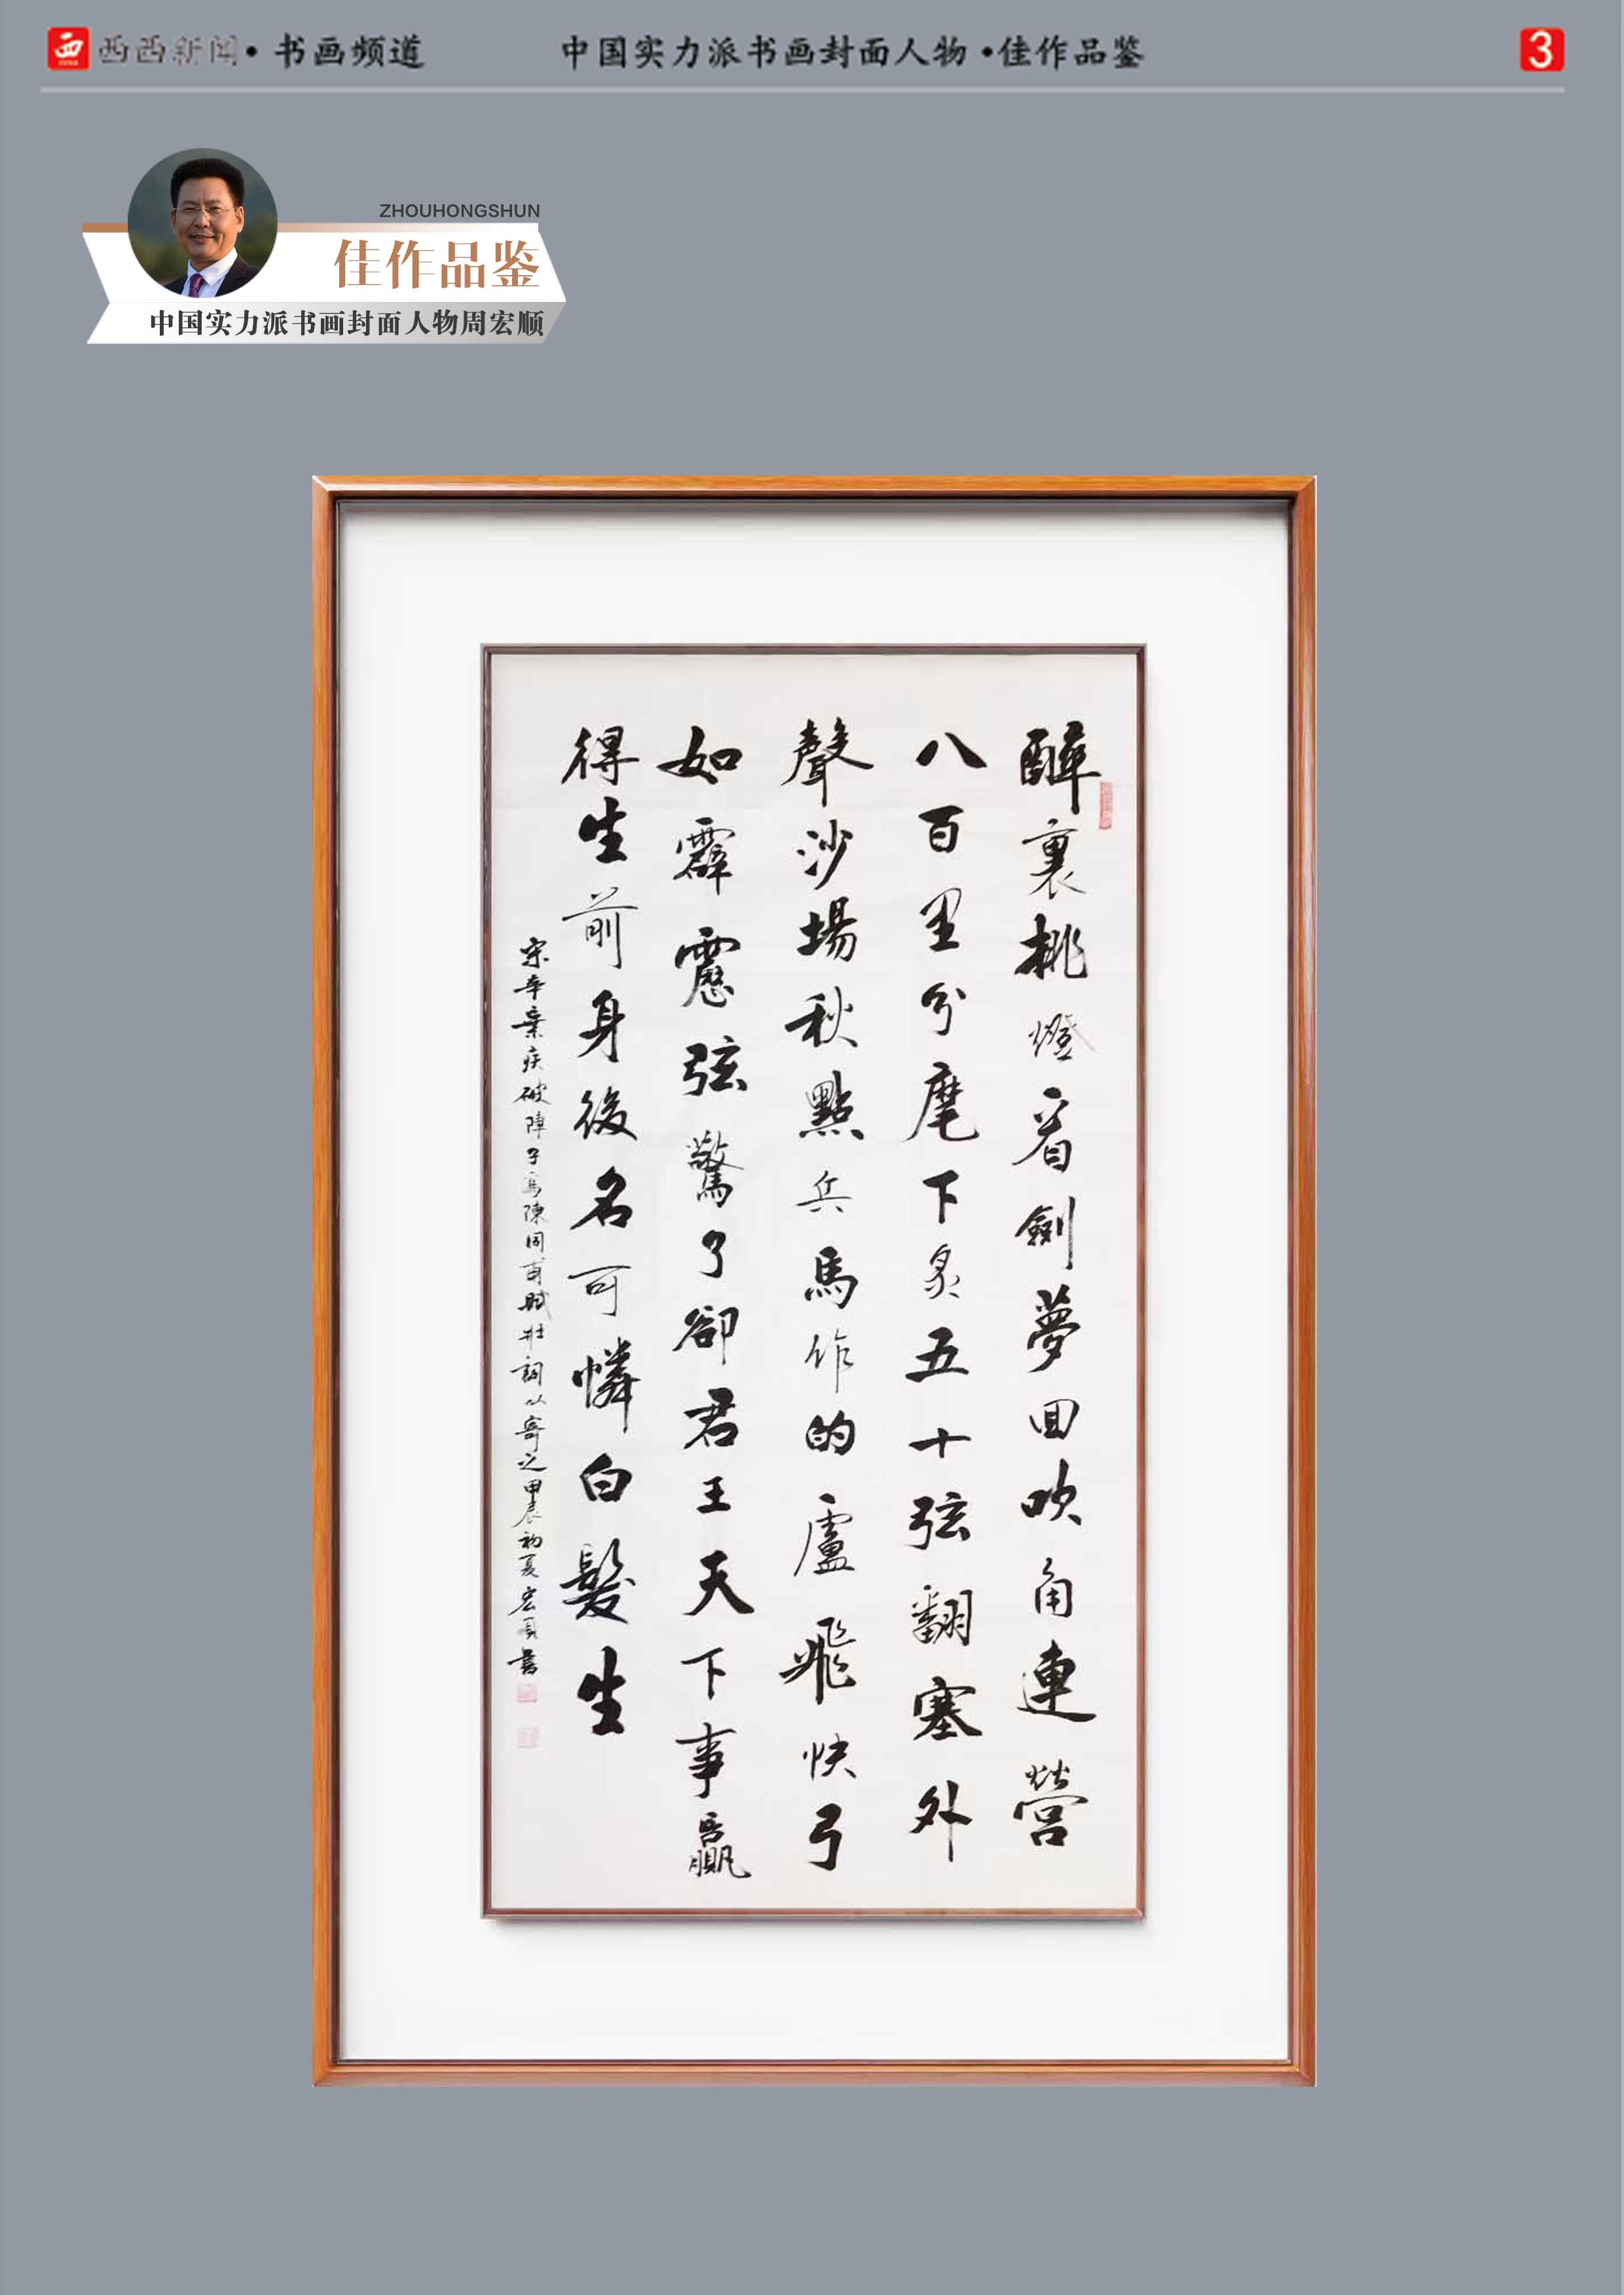 西 西西新闻•书画频道
中国实力派书画封面人物•佳作品鉴
3
ZHOUHONGSHUN
佳作品鉴
中国实力派书画封面人物周宏顺
醉裏挑燈看劍夢回吹角連營
八百里分麾下炙五十弦翻塞外
聲沙場秋點兵馬作的盧飛快弓
如霹靂弦驚了卻君王天下事贏
得生前身後名可憐白髮生
宋辛棄疾破陣子為陳同甫賦壯詞以寄之甲辰初夏宏順書